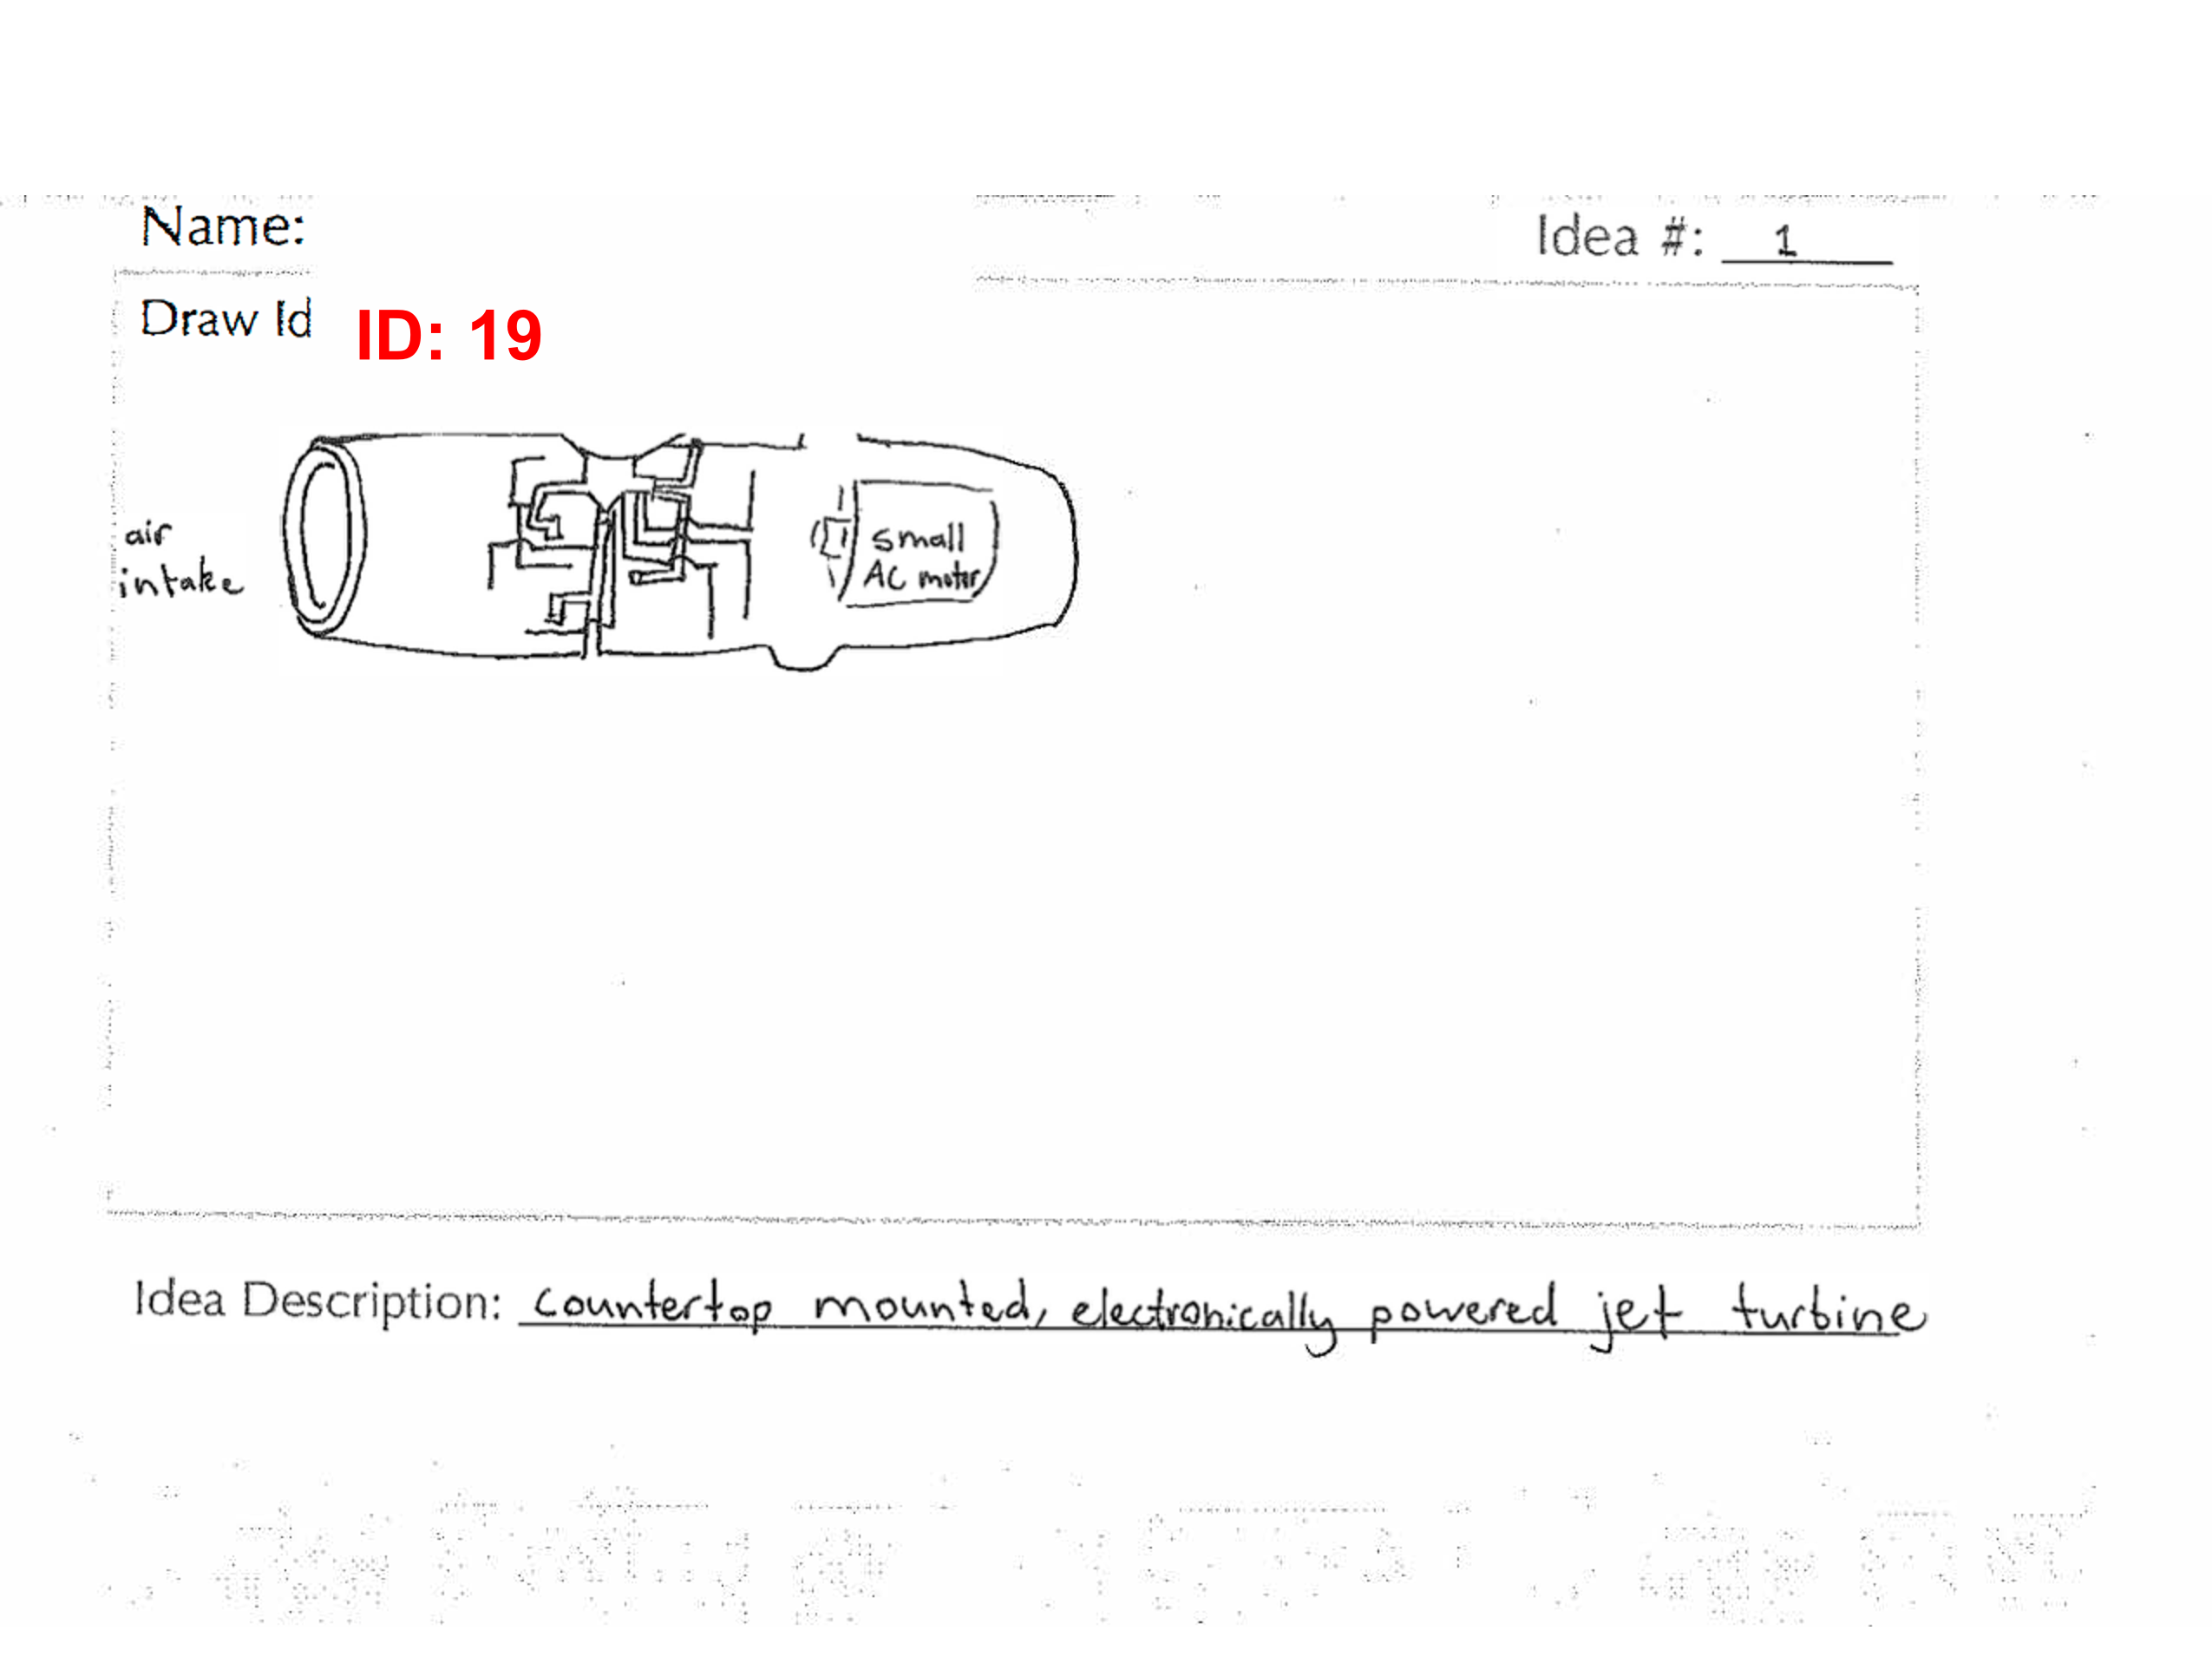 Name:
Idea #: 1
Draw Id
ID: 19
air
intake
small
AC motor
Idea Description: countertop mounted, electronically powered jet turbine